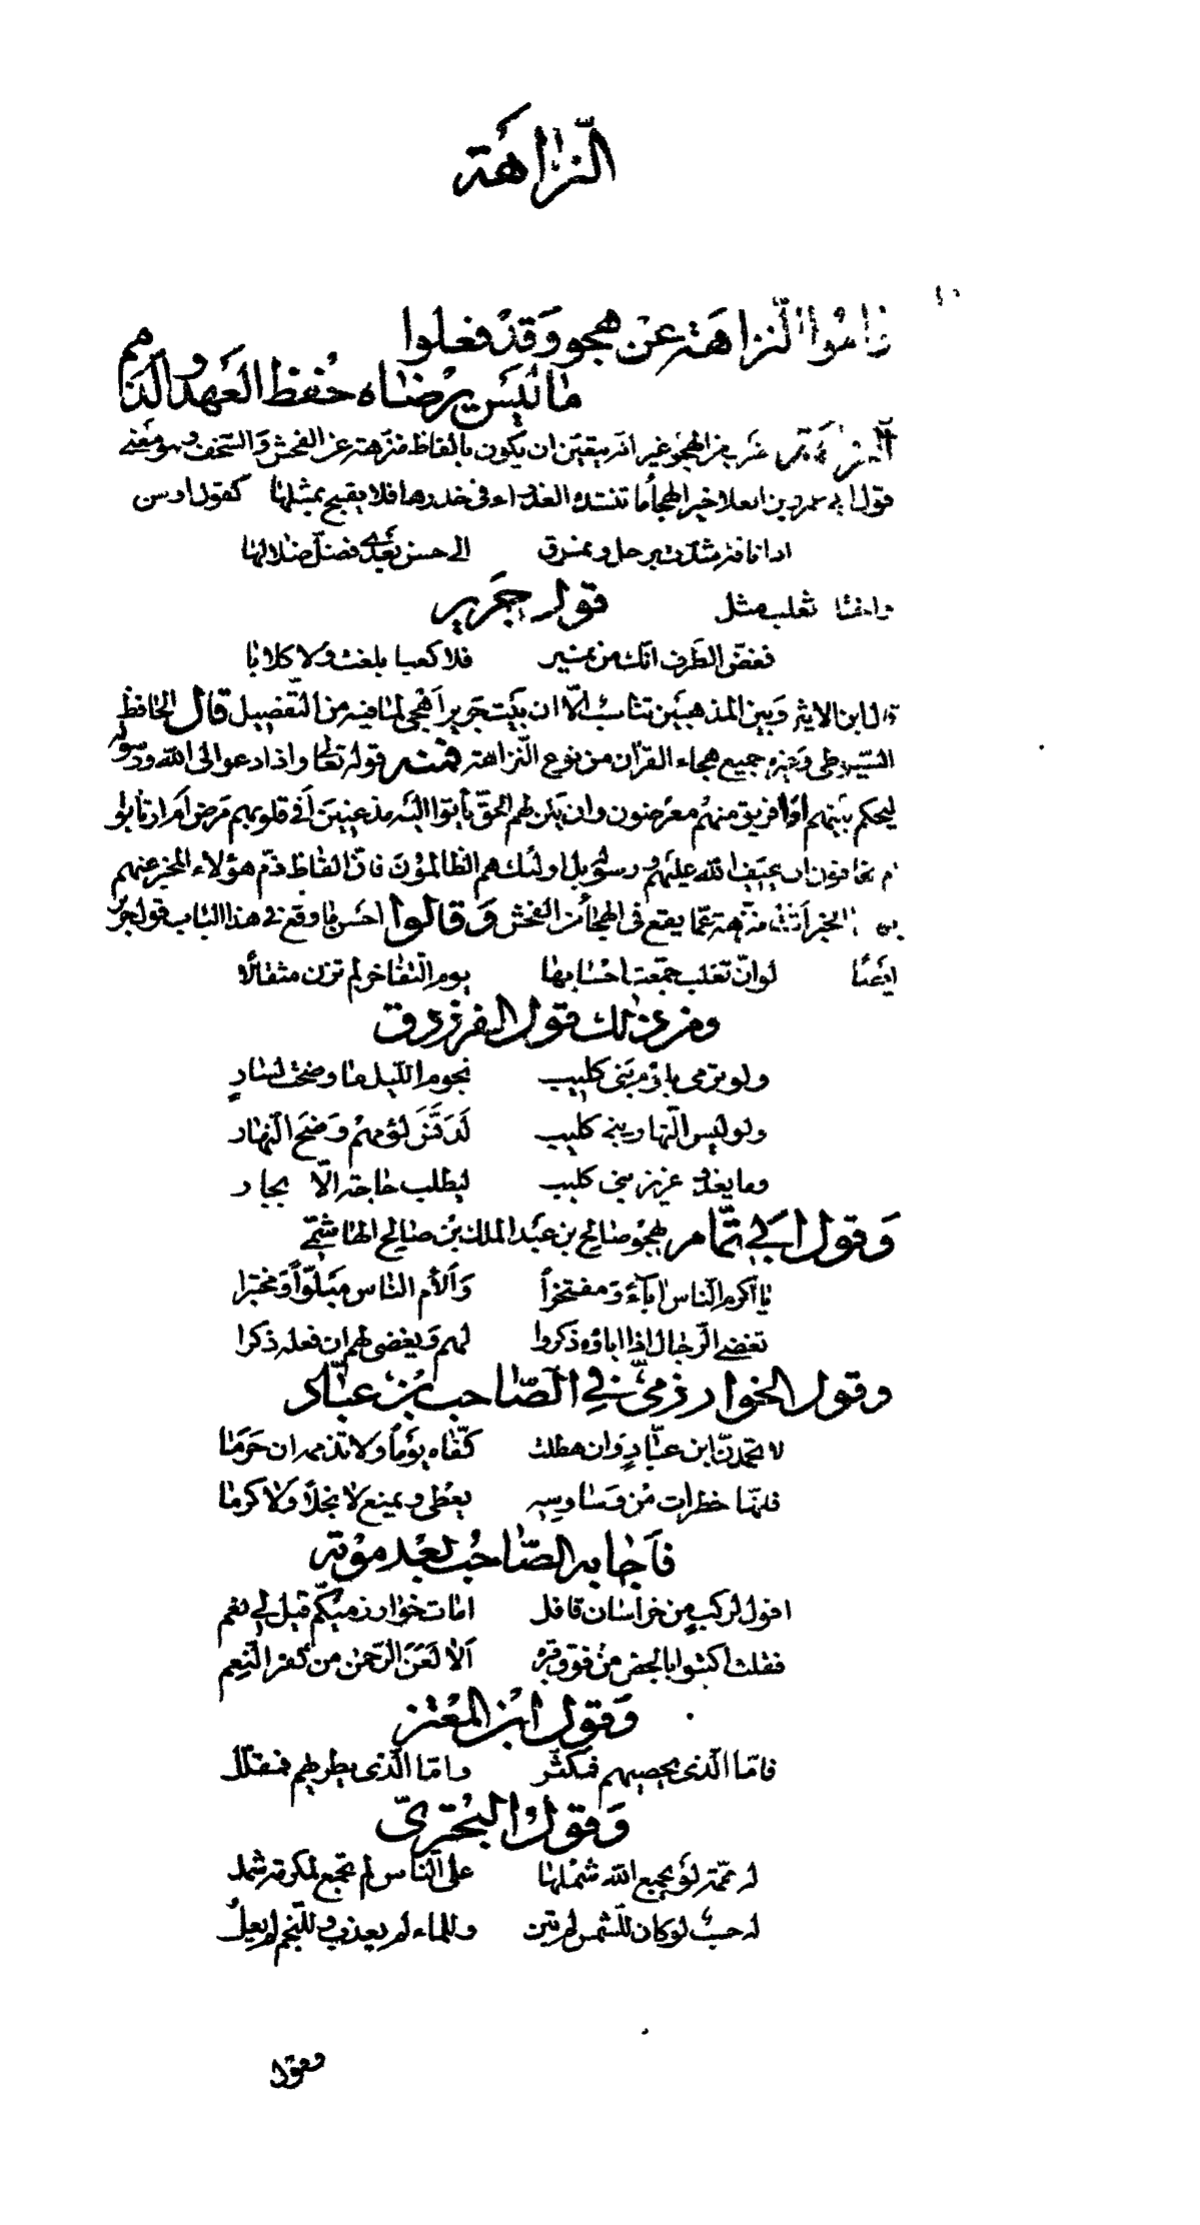 النزاهة
راموا النزاهة عن هجو وقد فعلوا
ما ليس يرضاه حفظ العهد والذمم
النزاهة ضرب من الهجو غير انه يتعين ان يكون بالفاظ منزهة عن الفحش والسخف وهو معنى
قول ابي عمرو بن العلا خير الهجا ما تنشده العذراء في خدرها فلا يقبح بمثلها كقول اوس
اذا ناقة شدت برحل ونمرق الى حسن بعدي فضل ضلالها
واختار ثعلب مثل قول جرير
فغض الطرف انك من نمير فلا كعبا بلغت ولا كلابا
قال ابن الاثير وبين المذهبين تناسب الا ان بيت جرير اهجى لما فيه من التفضيل قال الحافظ
السيوطي وغيره جميع هجاء القران من نوع النزاهة فمنه قوله تعالى واذا دعوا الى الله ورسوله
ليحكم بينهم اذا فريق منهم معرضون وان يكن لهم الحق يأتوا اليه مذعنين أفي قلوبهم مرض ام ارتابوا
ام يخافون ان يحيف الله عليهم ورسوله بل اولئك هم الظالمون فان الفاظ ذم هؤلاء المخبر عنهم
بهذا الخبر اتت منزهة عما يقع في الهجا من الفحش وقالوا احسن ما وقع في هذا الباب قول جرير
ايضا لو ان تغلب جمعت احسابها يوم التفاخر لم تزن مثقالا
ومن ذلك قول الفرزدق
ولو ترمى بلؤم بني كليب نجوم الليل ما وضحت لسار
ولو لبس النهار بني كليب لدنس لؤمهم وضح النهار
وما يغدو عزيز بني كليب ليطلب حاجة الا بجار
وقول ابي تمام يهجو صالح بن عبد الملك بن صالح الهاشمي
يا اكرم الناس اباء ومفتخرا وألأم الناس مبلوا ومختبرا
تغضي الرجال اذا اباؤه ذكروا لهم ويغضي لهم ان فعله ذكرا
وقول الخوارزمي في الصاحب بن عباد
لا تحمدن ابن عباد وان هطلت كفاه يوما ولا تذممه ان حرما
فانها خطرات من وساوسه يعطي ويمنع لا بخلا ولا كرما
فأجابه الصاحب بعد موته
اقول لركب من خراسان قافل امات خوارزميكم قيل لي نعم
فقلت اكتبوا بالجص من فوق قبره ألا لعن الرحمن من كفر النعم
وقول ابن المعتز
فاما الذي يحصيهم فمكثر واما الذي يطريهم فمقلل
وقول البحتري
له همة لو يجمع الله شملها على الناس لم تجمع لمكرمة شمل
له حسب لو كان للشمس لم تبن وللماء لم يعذب وللنجم لم يعل
وقول